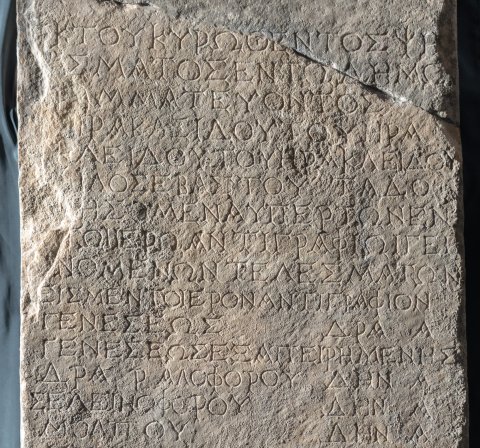 ΚΤΟΥΚΥΡΩΘΕΝΤΟΣΨ
ΣΜΑΤΟΣΕΝΤΩΔΗΜΩ
ΑΜΜΑΤΕΥΟΝΤΟΣ
ΗΡΑΚΛΕΙΔΟΥΤΟΥΗΡΑ
ΚΛΕΙΔΟΥΤΟΥΗΡΑΚΛΕΙΔΟΥ
ΙΛΟΣΕΒΑΣΤΟΥ ΤΑΔΟ
ΗΣΟΜΕΝΑΥΠΕΡΤΩΝΕΝ
ΤΩΙΕΡΩΑΝΤΙΓΡΑΦΙΩΙΓΕΙ
ΝΟΜΕΝΩΝΤΕΛΕΣΜΑΤΩΝ
ΕΙΣΜΕΝΤΟΙΕΡΟΝΑΝΤΙΓΡΑΦΙΟΝ
ΓΕΝΕΣΕΩΣ ΔΡΑ Α
ΓΕΝΕΣΕΩΣΕΞΑΙΤΕΙΡΗΜΕΝΗΣ
ΔΡΑ Ρ ΑΛΟΦΟΡΟΥ ΔΗΝ Α
ΣΕΛΕΙΝΟΦΟΡΟΥ ΔΗΝ Α
ΜΟΛΠΟΥ ΔΗΝ Α